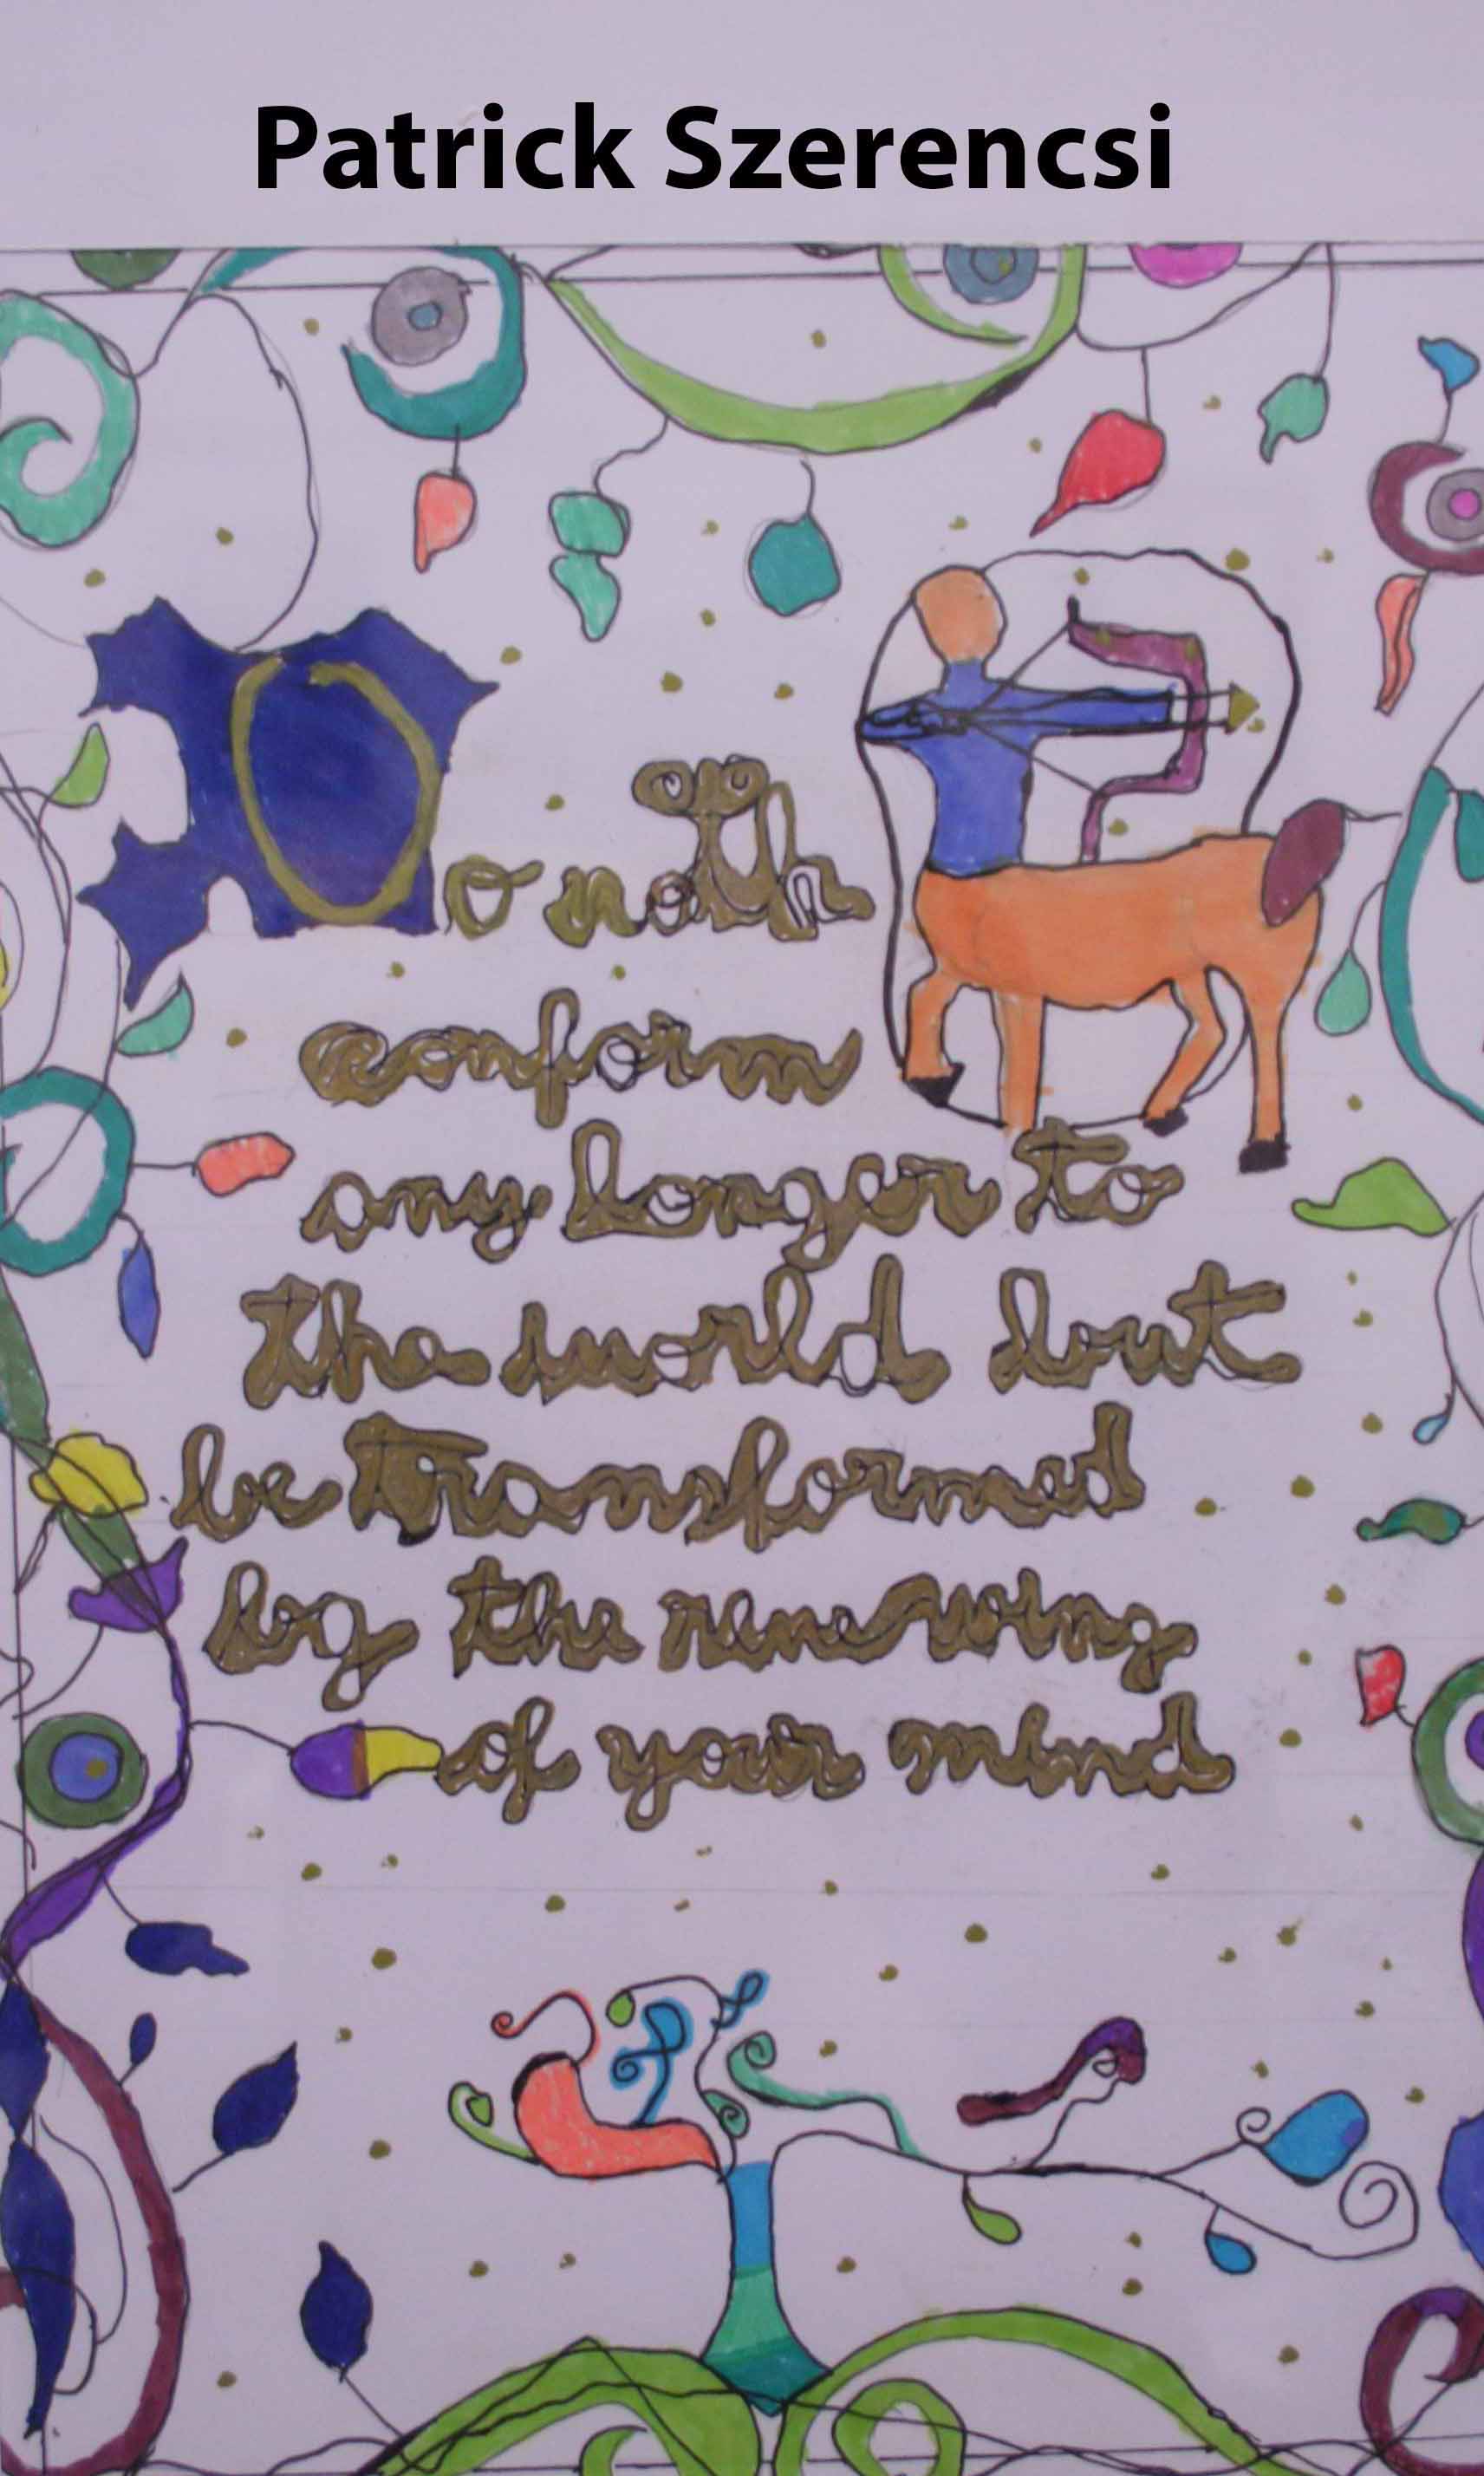 Patrick Szerencsi
Do noth
conform
any longer to
the world but
be transformed
by the renewing
of your mind